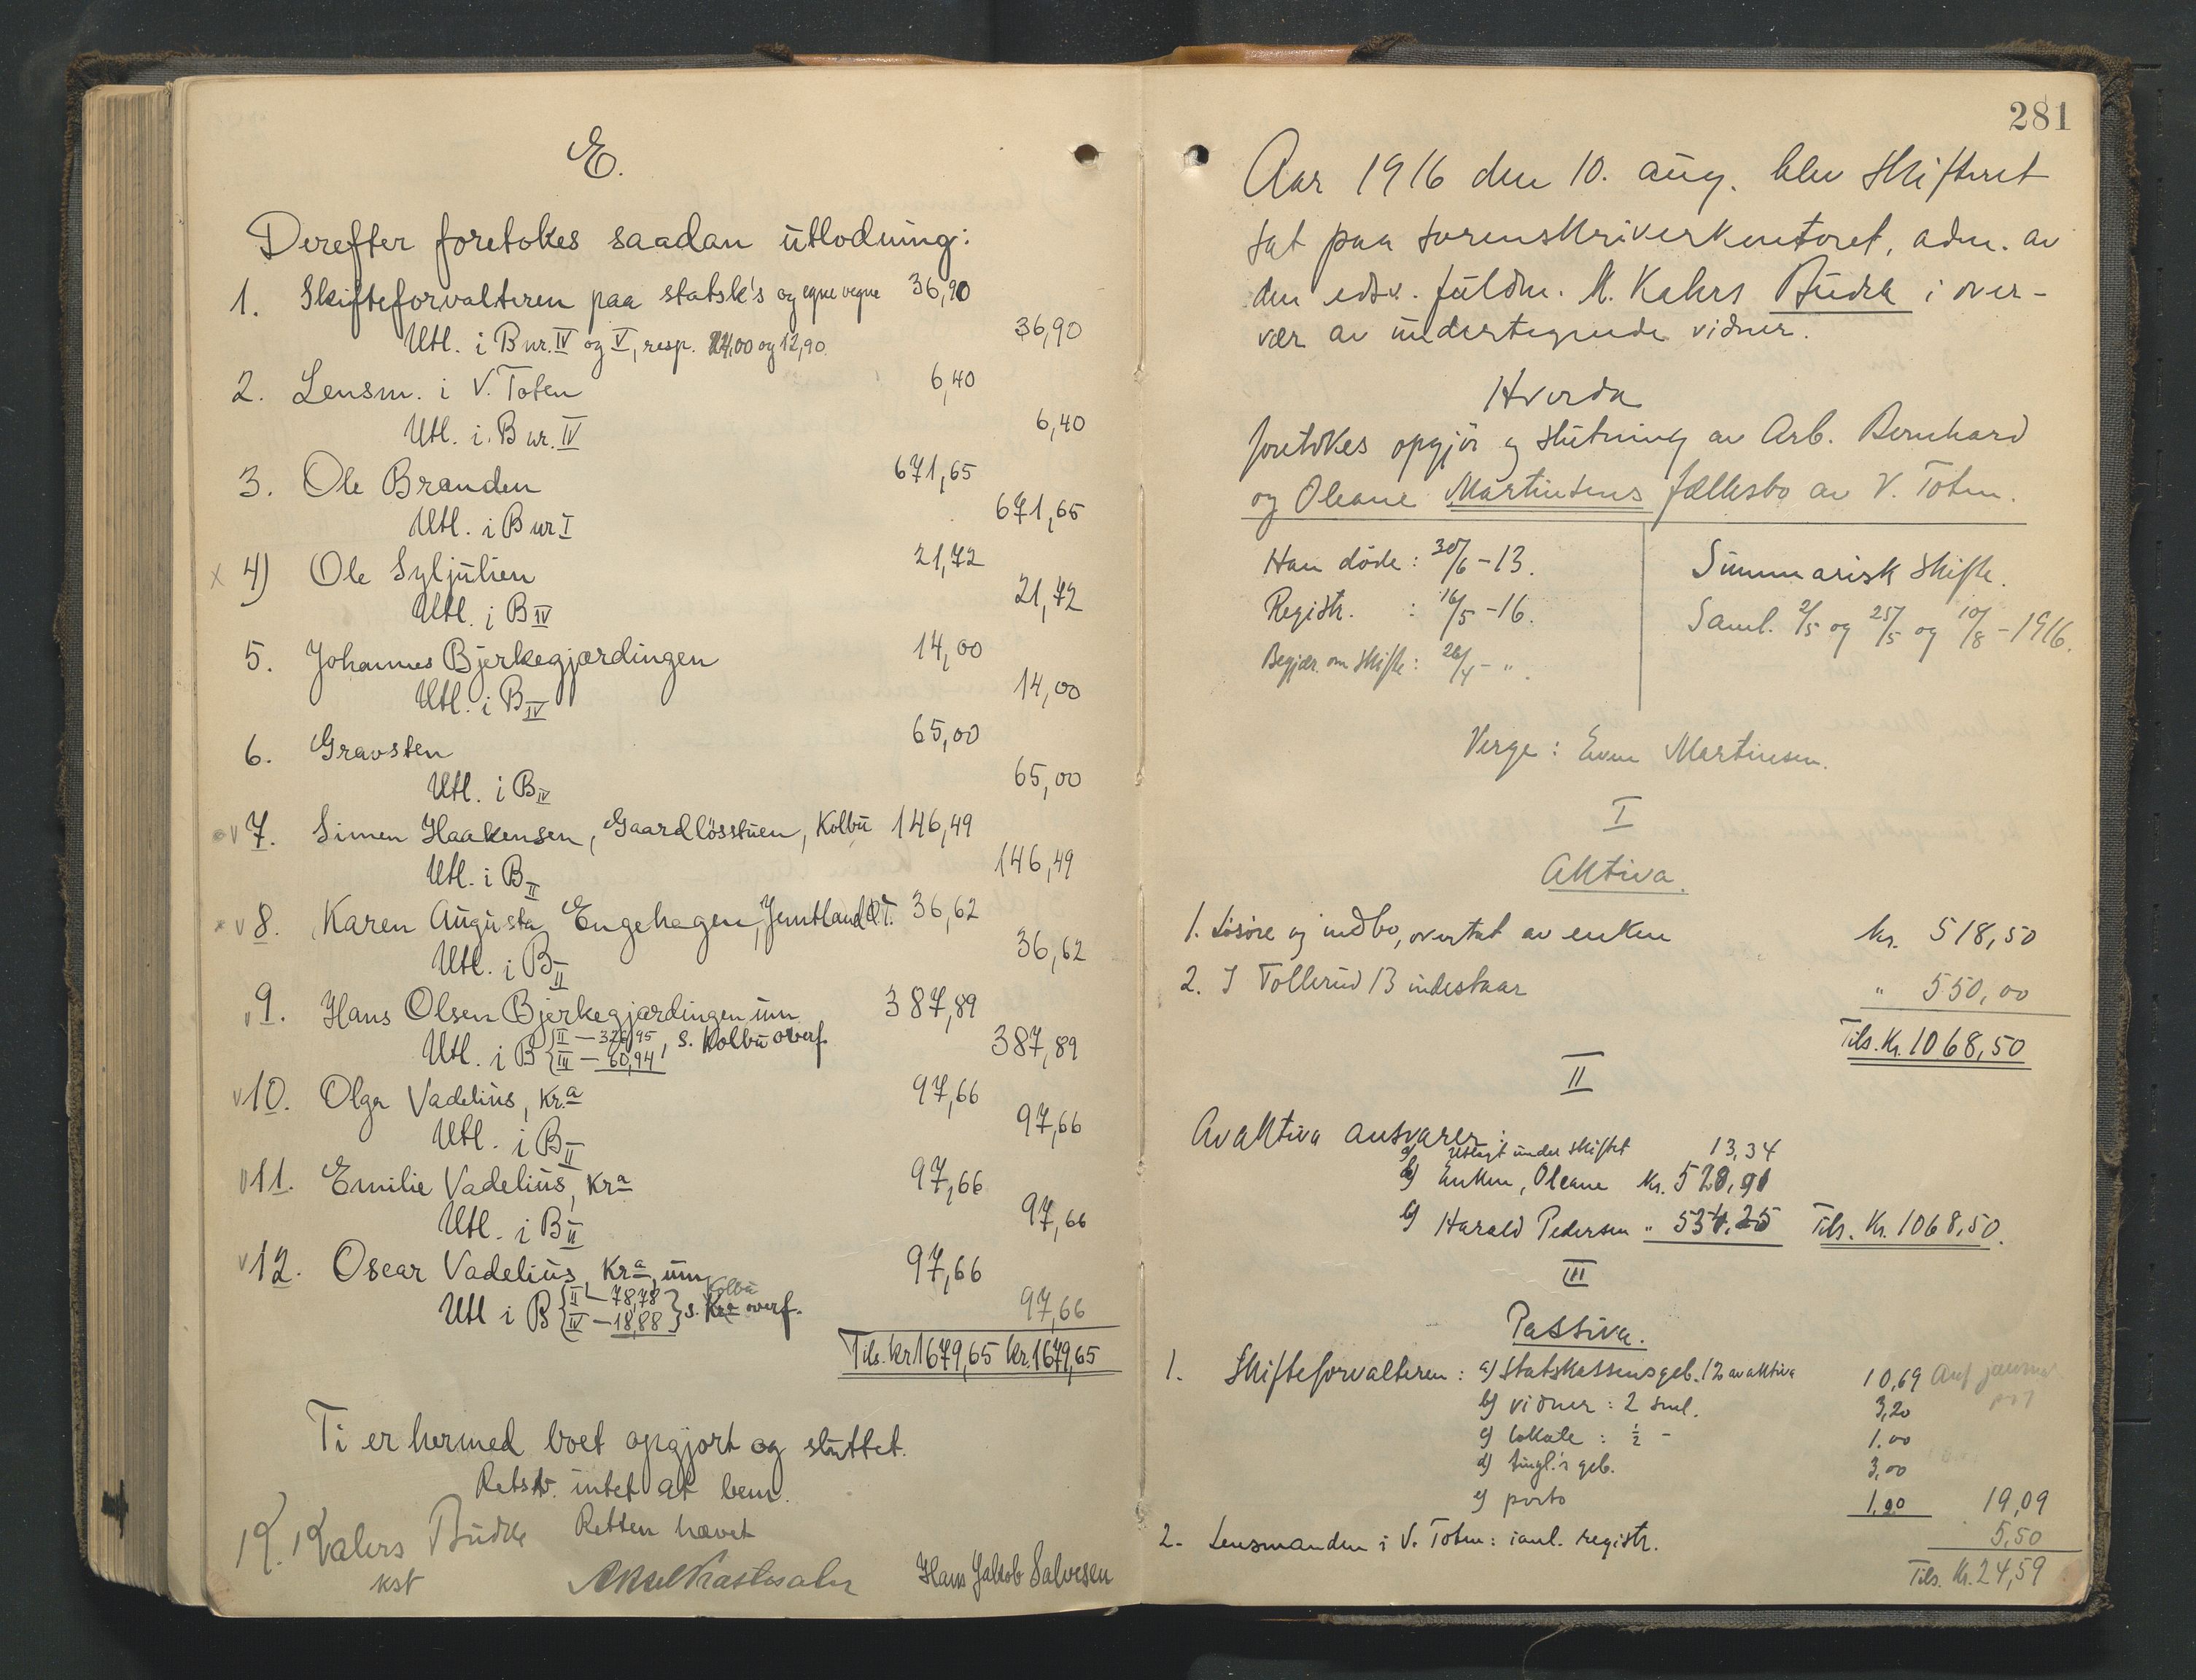 E.
Derefter foretokes saadan utlodning:
1. Skifteforvalteren paa statsk's og egne vegne 36,90
Utl. i B nr. IV og V, resp. 24,00 og 12,90 36,90
2. Lensm. i V. Toten 6,40
Utl. i B nr. IV 6,40
3. Ole Branden 671,65
Utl. i B nr I 671,65
x 4) Ole Syljulien 21,72
Utl. i B IV 21,72
5. Johannes Bjerkegjærdingen 14,00
Utl. i B IV 14,00
6. Gravsten 65,00
Utl. i B IV 65,00
v 7. Simen Haakensen, Gaardlösstuen, Kolbu 146,49
Utl. i B II 146,49
x v 8. Karen Augusta Engehagen, Jemtland Ö.T. 36,62
Utl. i B II 36,62
v 9. Hans Olsen Bjerkegjærdingen um. 387,89
Utl. i B { II — 326,95 III — 60,94 , S. Kolbu overf. 387,89
v 10. Olga Vadelius, Kr.a 97,66
Utl. i B II 97,66
v 11. Emilie Vadelius, Kra 97,66
Utl. i B II 97,66
v 12. Oscar Vadelius, Kra, um. 97,66
Kolbu
Utl i B { II — 78,78 IV — 18,88 } S. Kra overf. 97,66
Tils. kr 1679,65 kr. 1679,65
Ti er hermed boet opgjort og sluttet.
Retsv. intet at bem.
Retten hævet
K. Kahrs Budde
kst
Hans Jakob Salvesen
281
Aar 1916 den 10. aug. blev skifteret
sat paa sorenskriverkontoret, adm. av
den edsv. fuldm. K. Kahrs Budde i over-
vær av undertegnede vidner.
Hvorda
foretokes opgjör og slutning av Arb. Bernhard
og Oleane Martinsens fællesbo av V. Toten.
Han döde: 30/6 - 13.
Registr. : 16/5 - 16.
Begjær. om skifte: 26/4 - "
Summarisk skifte.
Saml. 2/5 og 25/5 og 10/8 - 1916.
Verge: Even Martinsen.
I
Aktiva.
1. Lösöre og indbo, overtat av enken kr. 518,50
2. I Tollerud B indestaar " 550,00
Tils. Kr. 1068,50
II
Av aktiva ansvarer:
a) Utlagt under skiftet 13,34
b) Enken, Oleane kr. 520,91
c) Harald Pedersen " 534,25 Tils. Kr. 1068,50.
III
Passiva.
1. Skifteforvalteren: a) Statskassens geb. 1% av aktiva 10,69
b) vidner: 2 sml. 3,20
c) lokale : ½ - 1.00
d) tingl.'s geb. 3,00
e) porto 1.20 19,09
2. Lensmanden i V. Toten: ianl. registr. 5,50
Tils. Kr. 24,59